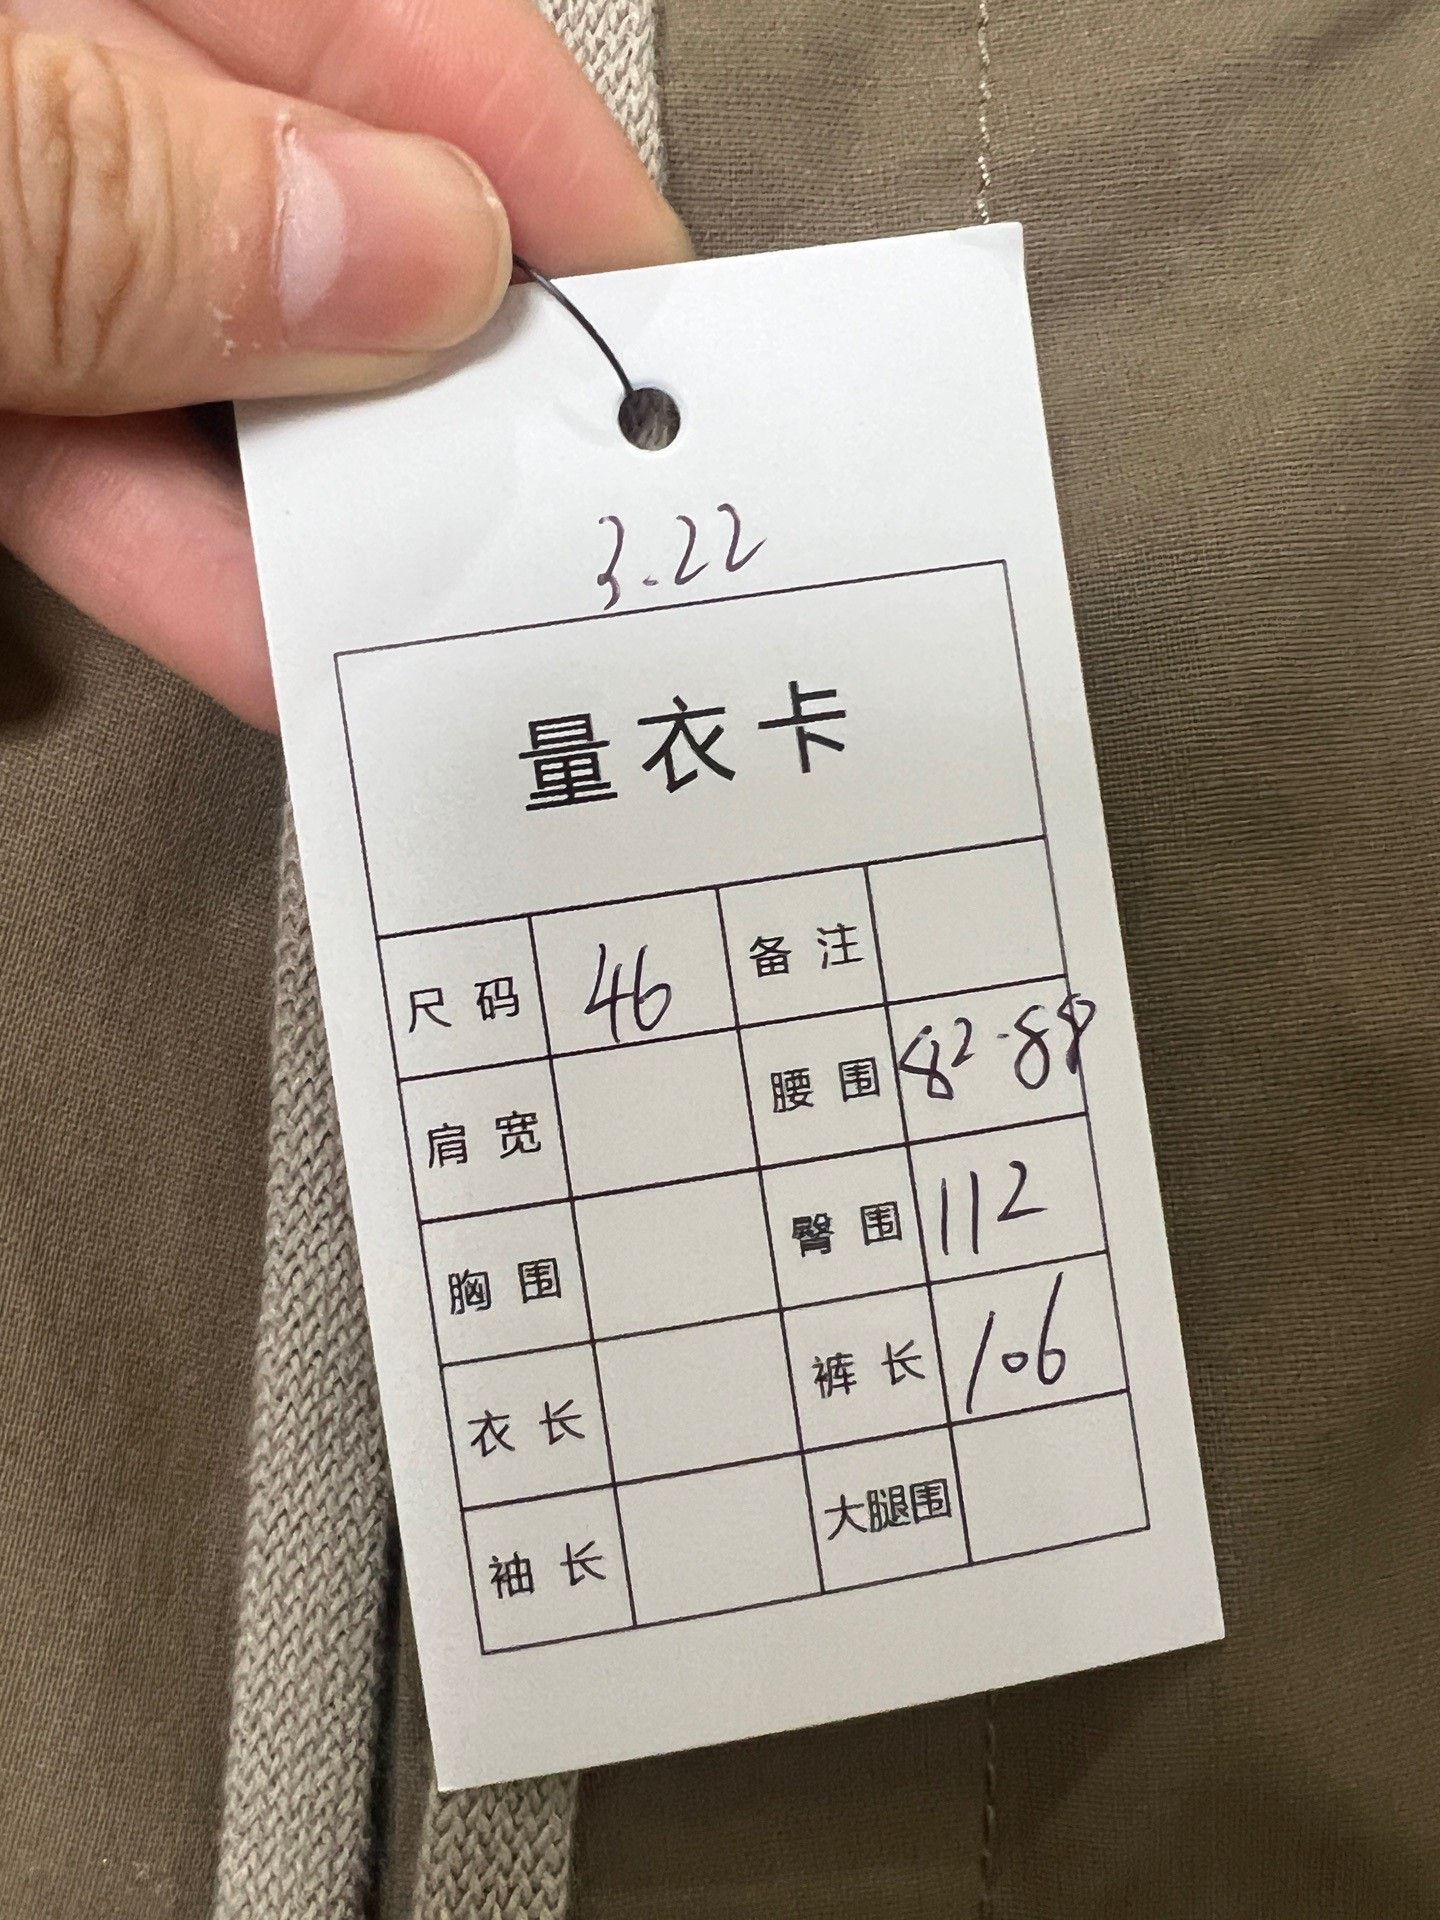 3.22
量衣卡
尺码 46 备注
肩宽 腰围 82-88
胸围 臀围 112
衣长 裤长 106
袖长 大腿围